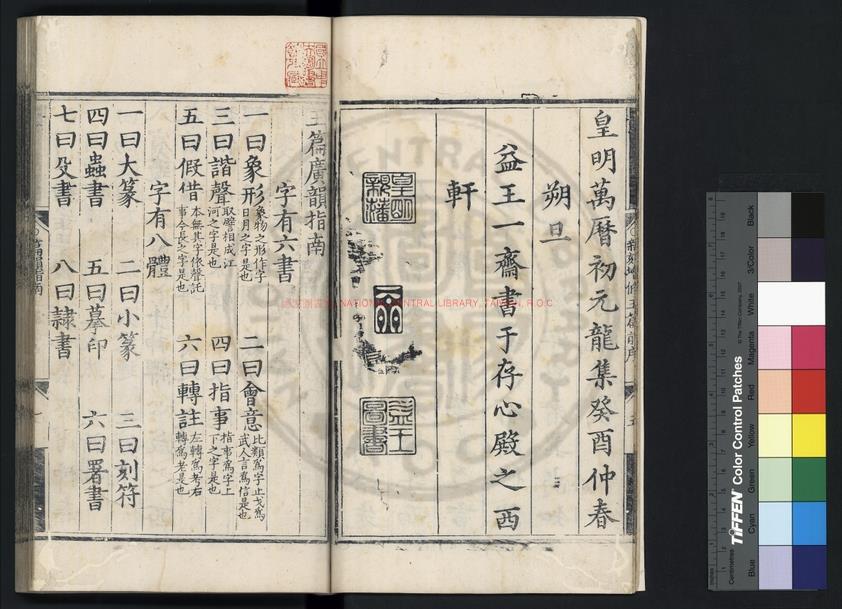 皇明萬曆初元龍集癸酉仲春
朔旦
益王一齋書于存心殿之西
軒
皇明
親藩
益王
圖書
玉篇廣韻指南
字有六書
一曰象形 象物之形作字 日月之字是也 二曰會意 比類爲字止戈爲 武人言爲信是也
三曰諧聲 取譬相成江 河之字是也 四曰指事 指事爲字上 下之字是也
五曰假借 本無其字依聲託 事令長之字是也 六曰轉註 左轉爲考右 轉爲老是也
字有八體
一曰大篆 二曰小篆 三曰刻符
四曰蟲書 五曰摹印 六曰署書
七曰殳書 八曰隷書
NATIONAL CENTRAL LIBRARY, TAIWAN, R.O.C
TIFFEN Color Control Patches
© The Tiffen Company, 2007
Centimetres
Inches
Blue
Cyan
Green
Yellow
Red
Magenta
White
3/Color
Black